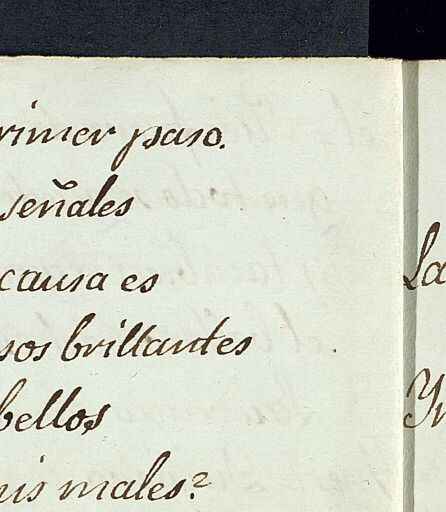 rimer paso.
señales
causa es
sos brillantes
bellos
mis males?
La